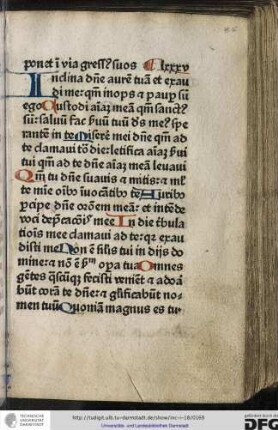 ponet ī via gress⁹ suos lxxxv
Inclina dn̄e aurē tuā et exau
di me: qm̄ inops ⁊ paup sū
ego Custodi aīaʒ meā qm̄ sanct⁹
sū: saluū fac ẜuū tuū d̄s me⁹ spe
rantē in te Misere mei dn̄e qm̄ ad
te clamaui tō die: letifica aīaʒ ẜui
tui qm̄ ad te dn̄e aīaʒ meā leuaui
Qm̄ tu dn̄e suauis ⁊ mitis: ⁊ ml̄
te mīe oībꝰ īuocātibꝰ te Auribꝰ
ꝑcipe dn̄e orōem meā: et intēde
voci dep̄cacōīs mee In die tribula
tiōis mee clamaui ad te: qꝛ exau
disti me Non ē sīlis tui in dijs do
mine: ⁊ nō ē ẜm opa tua Omnes
gētes qscūqʒ fecisti veniēt ⁊ adoā
būt corā te dn̄e: ⁊ glīficabūt no-
men tuū Quoniā magnus es tu
http://tudigit.ulb.tu-darmstadt.de/show/inc-i-18/0169
Universitäts- und Landesbibliothek Darmstadt